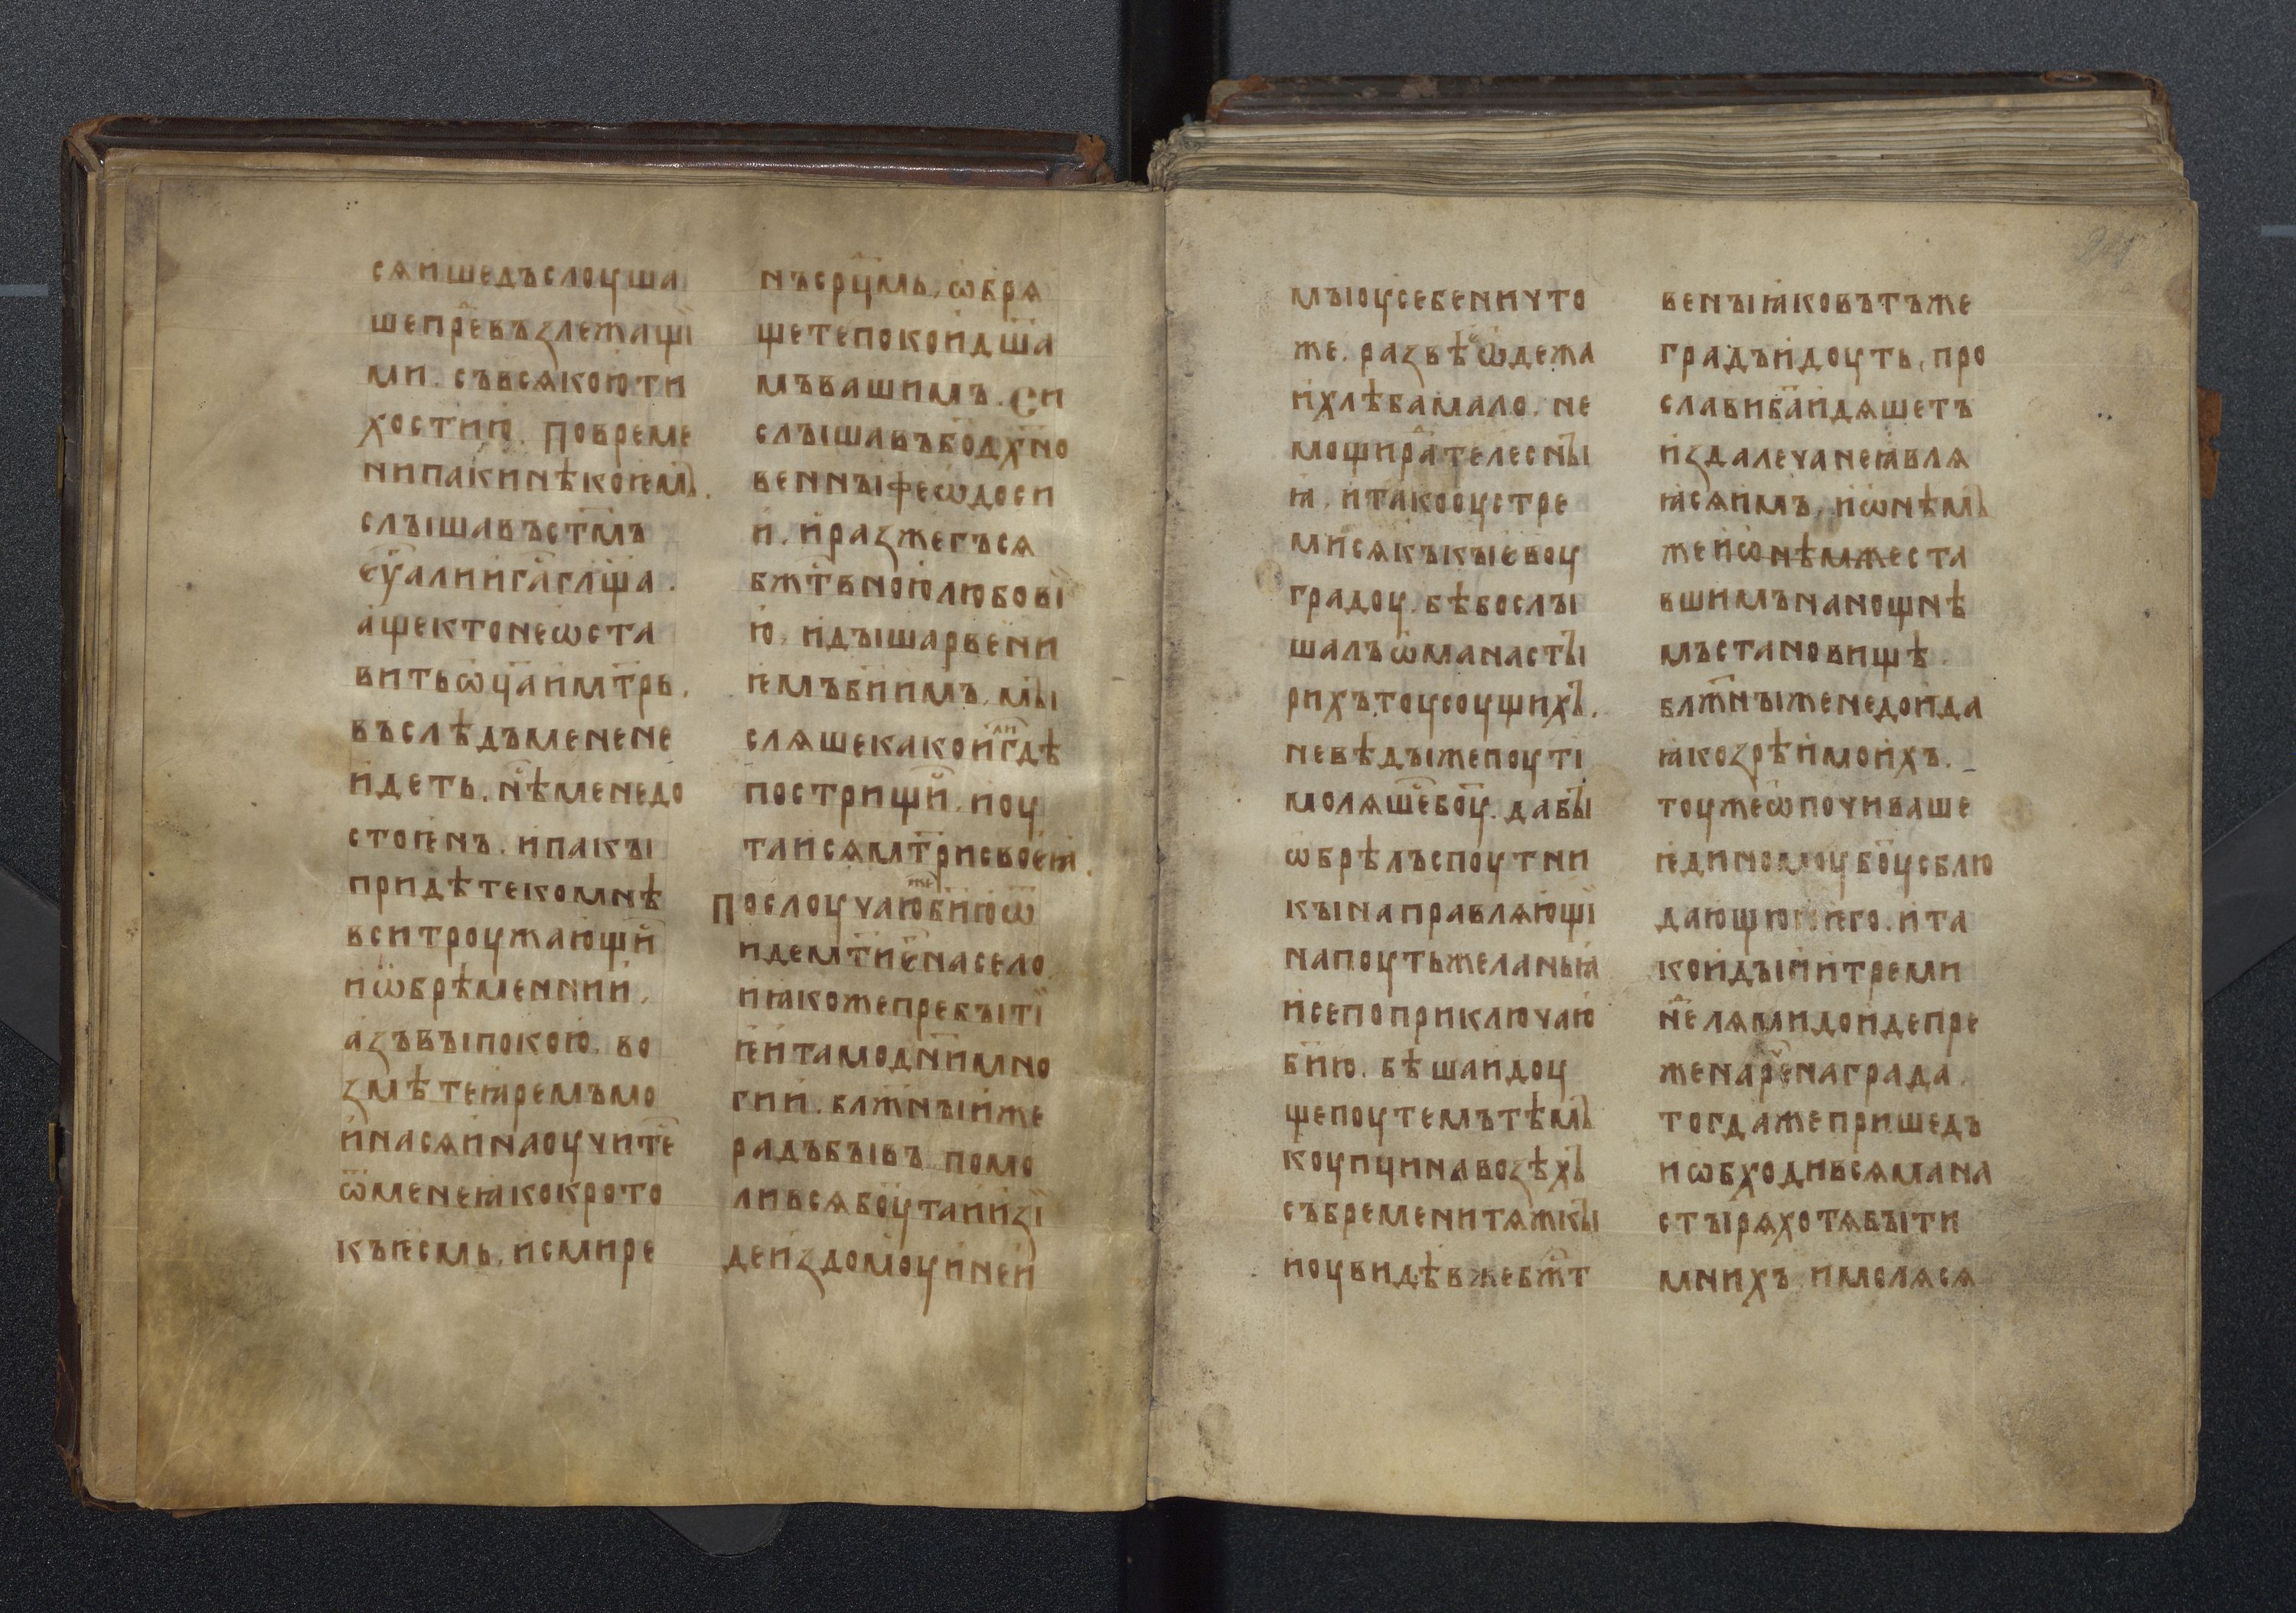 сѧ и шедъ слоуша
ше пр҇евъзлежащї
ми. съ всѧкою ти
хостию. По времє
ни пакꙑ нѣкоѥмъ.
слышавъ ст҃мъ
еу҃алии г҃а гл҃ща.
аще кто не ѡста
вить ѡц҃а и мт҃рь.
въслѣдъ мене не
идеть. нѣ мене до
стоинъ. и пакꙑ
придѣте ко мнѣ
вси троужающи҃и
и ѡбрѣменнии.
азъ вꙑ покою. во
змѣте ꙗремъ мо
и на сѧ и наоучите҃
ѿ мене ꙗко крото
къ ѥсмь. и смире
нъ ср҃цмь. ѡбрѧ
щете покои дш҃а
мъ вашимъ. Си
слꙑшавъ бо҃дх҃но
веннꙑ феѡдоси
и. и разжегъсѧ
бж҃твною любові
ю. и дꙑша рвени
ѥмъ би҃имъ. мꙑ
слѧше како ил̾и гдѣ
пострищи҃. и оу
таисѧ мт҃ри своеꙗ.
По слоучаю же би҃ю ѿ
иде мт҃и ѥ҃ на село.
и ꙗкоже пребꙑті
ѥи тамо дн҃и мно
гии. блж҃нꙑи же
радъ бꙑвъ. помо
ливсѧ бо҃у таи изі
де из домоу и не и
мꙑ оу себе ничто
же. развѣ ѡ҃дежа
и хлѣба мало. не
мощи ра҃ телеснꙑ
ꙗ. и тако оустре
мисѧ къ кꙑевоу
градоу. бѣ бо слꙑ
шалъ ѡ манастꙑ
рихъ тоу соущихъ.
не вѣдꙑ же поуті
молѧше҃ бо҃у. да бꙑ
ѡбрѣлъ споутни
кꙑ направлѧющї
на поуть желаньꙗ
и се по приключаю
би҃ю. бѣша идоу
ще поутемъ тѣмъ
коупци на возѣхъ
съ бремени тѧжкꙑ
и оувидѣв же бж҃т
венꙑ ꙗко въ тъже
градъ идоуть. про
слави ба҃ идѧше тъ
издалеча не ꙗвлѧ
ꙗсѧ имъ. и ѡнѣмъ
же и ѡнѣмже ста
вшимъ на нощнѣ
мъ становищѣ.
блж҃нꙑ же не доида
ꙗко зрѣи мо ихъ.
тоу же ѡпочиваше
ѥдиномоу бо҃у сблю
дающю ѥго. и та
ко идꙑи и треми
не҃лѧми доиде пре
же наре҃на града.
тогда же пришедъ
и ѡбходивсѧ мана
стꙑрѧ хотѧ бꙑти
мнихъ. и молѧсѧ